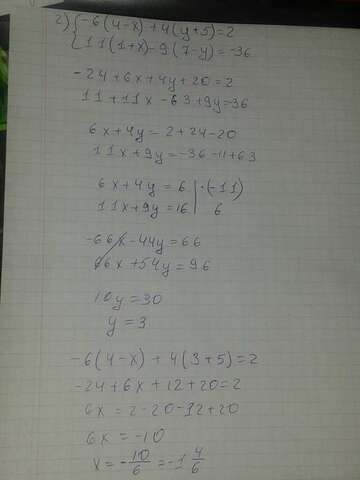 2) { -6(4-x) + 4(y+5) = 2
11(1+x) - 9(7-y) = -36
-24 + 6x + 4y + 20 = 2
11 + 11x - 63 + 9y = 36
6x + 4y = 2 + 24 - 20
11x + 9y = -36 - 11 + 63
6x + 4y = 6 | · (-11)
11x + 9y = 16 | 6
-66x - 44y = 66
66x + 54y = 96
10y = 30
y = 3
-6(4-x) + 4(3+5) = 2
-24 + 6x + 12 + 20 = 2
6x = 2 - 20 - 12 + 20
6x = -10
x = -10/6 = -1 4/6